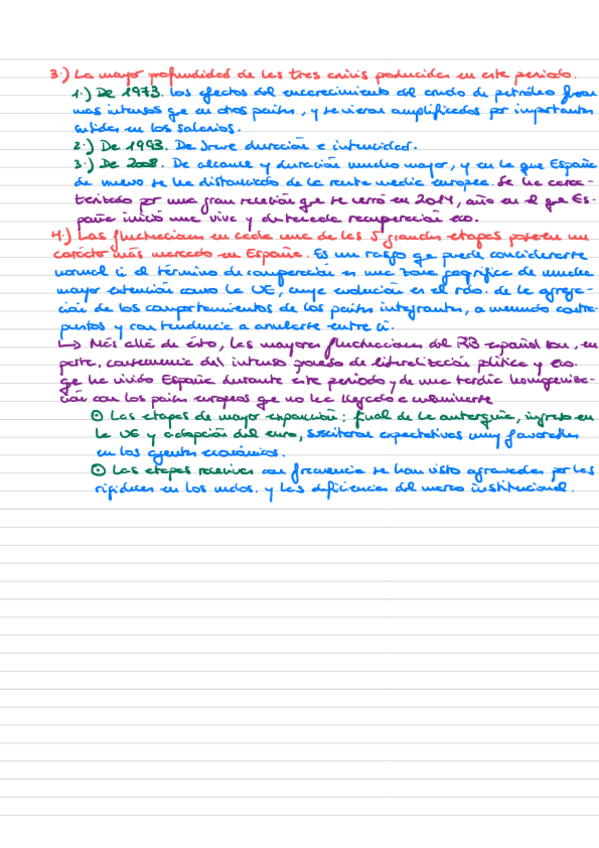 3.) La mayor profundidad de las tres crisis producidas en este periodo.
1.) De 1973. Los efectos del encarecimiento del crudo de petróleo fueron
mas intensos qe en otros países, y se vieron amplificados por importantes
subidas en los salarios.
2.) De 1993. De breve duración e intensidad.
3.) De 2008. De alcance y duración mucho mayor, y en la que España
de nuevo se ha distanciado de la renta media europea. Se ha carac-
terizado por una gran recesión que se cerró en 2014, año en el que Es-
paña inició una viva y destacada recuperación eco.
4.) Las fluctuaciones en cada una de las 5 grandes etapas poseen un
carácter más marcado en España. Es un rasgo qe puede considerarse
normal si el término de comparación es una zona geográfica de mucha
mayor extensión como la UE, cuya evolución es el rdo. de la agrega-
ción de los comportamientos de los países integrantes, a menudo contra-
puestos y con tendencia a anularse entre sí.
↳ Más allá de ésto, las mayores fluctuaciones del PIB español son, en
parte, consecuencia del intenso proceso de liberalización política y eco.
qe ha vivido España durante este periodo y de una tardía homogeniza-
ción con los países europeos qe no ha llegado a culminarse
⊙ Las etapas de mayor expansión: final de la autarquía, ingreso en
la UE y adopción del euro, suscitaron expectativas muy favorables
en los agentes económicos.
⊙ Las etapas recesivas con frecuencia se han visto agravadas por las
rigideces en los mdos. y las deficiencias del marco institucional.